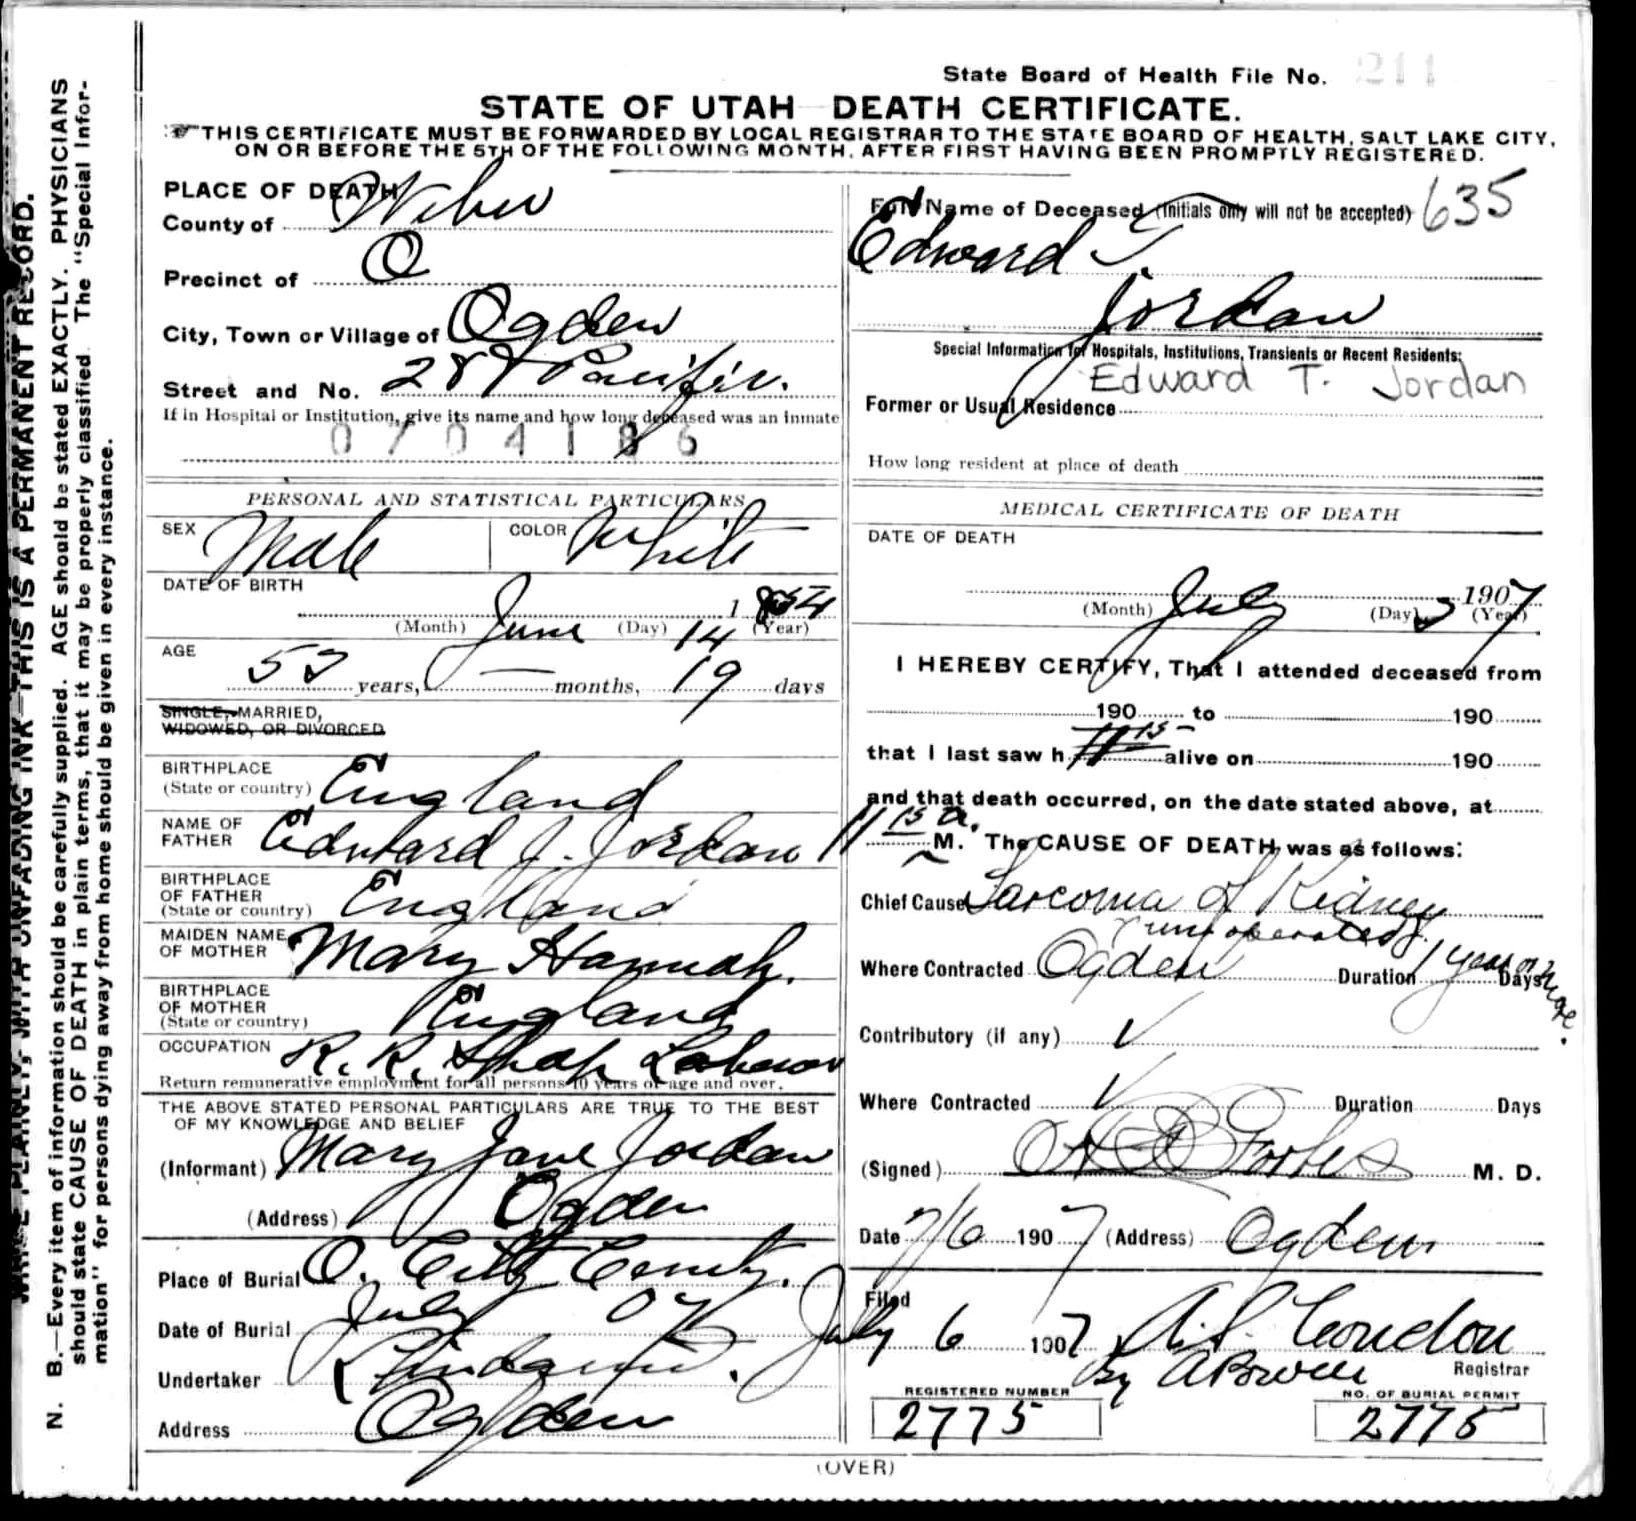 State Board of Health File No. 211
STATE OF UTAH DEATH CERTIFICATE.
THIS CERTIFICATE MUST BE FORWARDED BY LOCAL REGISTRAR TO THE STATE BOARD OF HEALTH, SALT LAKE CITY,
ON OR BEFORE THE 5TH OF THE FOLLOWING MONTH, AFTER FIRST HAVING BEEN PROMPTLY REGISTERED.
WRITE PLAINLY, WITH UNFADING INK—THIS IS A PERMANENT RECORD.
N. B.—Every item of information should be carefully supplied. AGE should be stated EXACTLY. PHYSICIANS
should state CAUSE OF DEATH in plain terms, that it may be properly classified. The "Special Infor-
mation" for persons dying away from home should be given in every instance.
PLACE OF DEATH
County of Weber
Precinct of O
City, Town or Village of Ogden
Street and No. Pacific.
If in Hospital or Institution, give its name and how long deceased was an inmate
0704186
PERSONAL AND STATISTICAL PARTICULARS
SEX Male COLOR White
DATE OF BIRTH
June 14 1854
(Month) (Day) (Year)
AGE
53 years, — months, 19 days
SINGLE, MARRIED,
WIDOWED, OR DIVORCED
BIRTHPLACE
(State or country) England
NAME OF
FATHER Edward J. Jordan
BIRTHPLACE
OF FATHER
(State or country) England
MAIDEN NAME
OF MOTHER Mary Hannah.
BIRTHPLACE
OF MOTHER
(State or country) England
OCCUPATION R. R. Shop Laborer
Return remunerative employment for all persons 10 years of age and over.
THE ABOVE STATED PERSONAL PARTICULARS ARE TRUE TO THE BEST
OF MY KNOWLEDGE AND BELIEF
(Informant) Mary Jane Jordan
(Address) Ogden
Place of Burial O. City Cemty.
Date of Burial July 07
Undertaker
Address Ogden
Full Name of Deceased (Initials only will not be accepted) 635
Edward T
Jordan
Special Information for Hospitals, Institutions, Transients or Recent Residents:
Edward T. Jordan
Former or Usual Residence
How long resident at place of death
MEDICAL CERTIFICATE OF DEATH
DATE OF DEATH
July 3 1907
(Month) (Day) (Year)
I HEREBY CERTIFY, That I attended deceased from
190 to 190
that I last saw h 11 15 alive on 190
and that death occurred, on the date stated above, at
11 15 a. M. The CAUSE OF DEATH was as follows:
Chief Cause Sarcoma of Kidney
unoperated
Where Contracted Ogden Duration 1 year or more. Days
Contributory (if any) √
Where Contracted √ Duration Days
(Signed) Forbes M. D.
Date 7/6 1907 (Address) Ogden
Filed
July 6 1907 A. S. Condon
By A Bowen Registrar
REGISTERED NUMBER
2775
NO. OF BURIAL PERMIT
2775
(OVER)